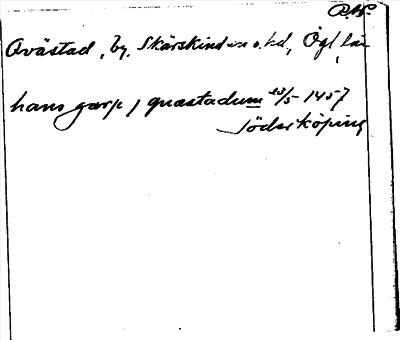 Qvästad, by, Skärskind sn o. hd, Ögl län
hans garp j quastadum 23/5 1457
Söderköping